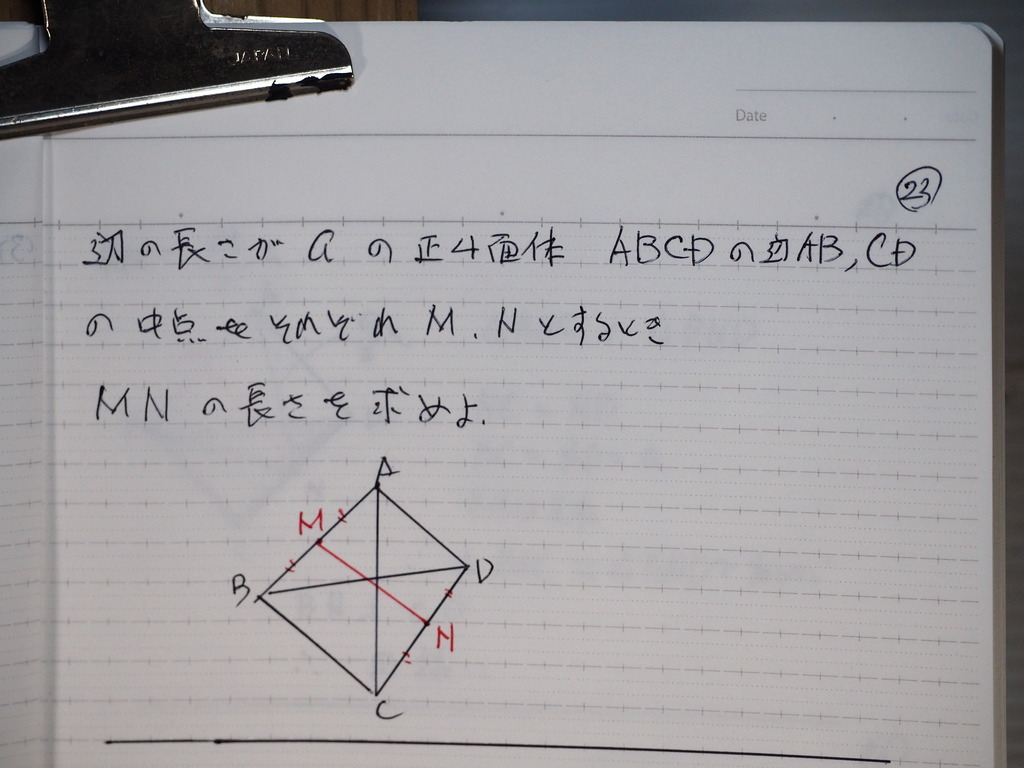 JAPAN
Date
23
辺の長さが a の正4面体 ABCDの辺AB, CD
の中点をそれぞれ M, N とするとき
MN の長さを求めよ.
A
M
B
D
N
C